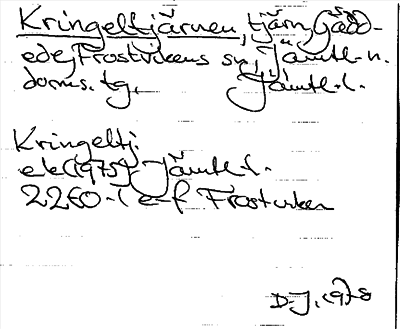 Kringeltjärnen, tjärn, Gädd-
ede, Frostvikens sn, Jämtl. n.
doms. tg, Jämtl. l.
Kringeltj.
ek (1975) Jämtl. l.
22E0-1 e-f Frostviken
D. J. 1978